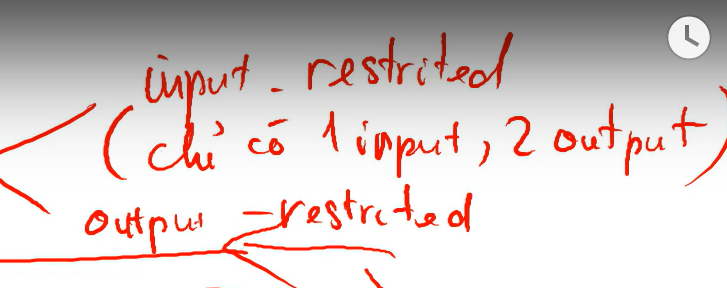 input - restrited
(chỉ có 1 input, 2 output)
output - restrcted